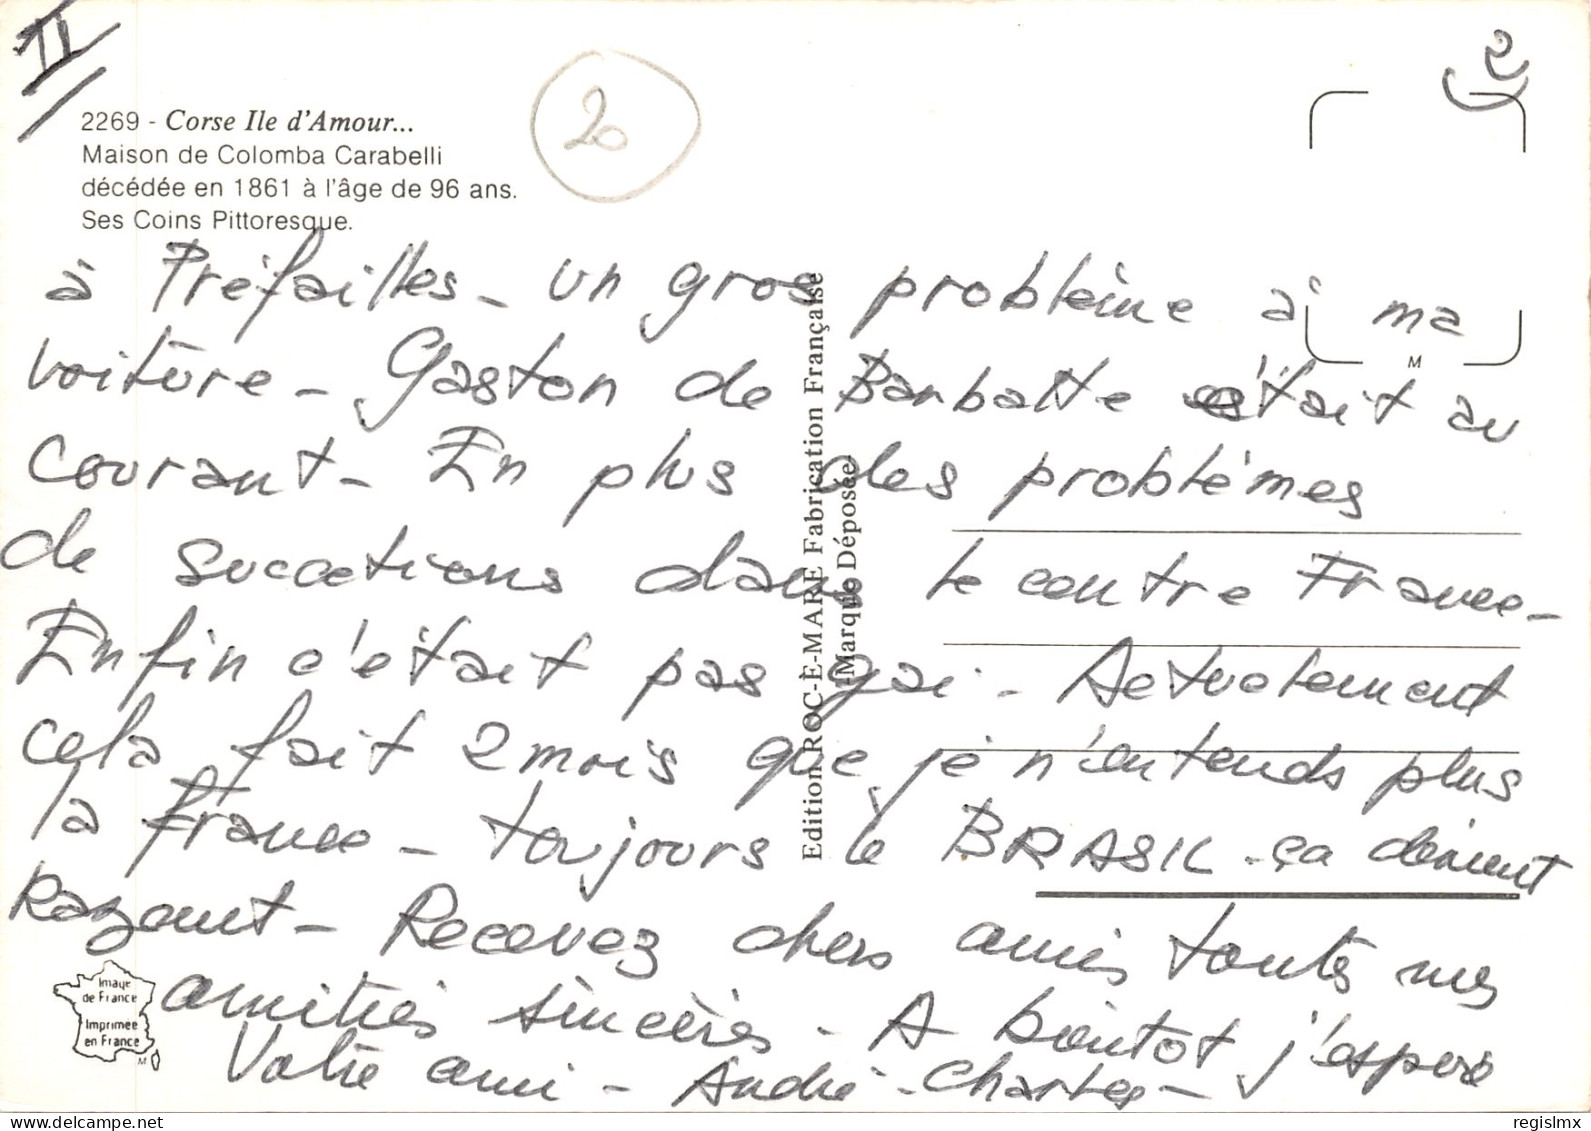 II
20
2269 - Corse Ile d'Amour...
Maison de Colomba Carabelli
décédée en 1861 à l'âge de 96 ans.
Ses Coins Pittoresque.
à Préfailles - un gros problème à ma
voiture - Gaston de Barbatte était au
courant - En plus des problèmes
de succetions dans le centre France -
Enfin c'était pas gai - Actuelement
cela fait 2 mois que je n'entends plus
la France - toujours le BRASIL - ça devient
Razant - Recevez chers amis toutes mes
amitiés sincères - A bientot j'espère
Votre ami - André - Charles -
Edition ROC-E-MARE Fabrication Française
(Marque Déposée)
M
Image
de France
Imprimée
en France
M
regislmx